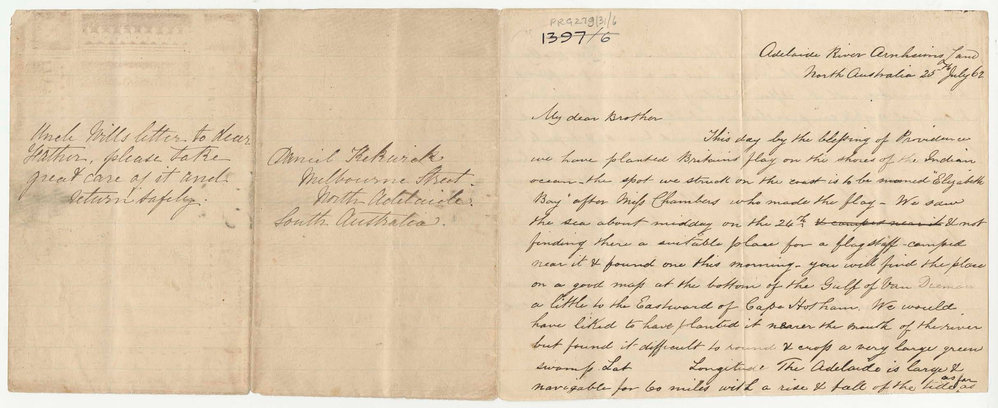 Uncle Will's letter to dear
Father, please take
great care of it and
return safely.
Daniel Kekwick
Melbourne Street
North Adelaide
South Australia.
PRG279/31/6
1397/6
Adelaide River Arnheims Land
North Australia 25th July 62
My dear Brother
This day by the blessing of Providence
we have planted Britains flag on the shores of the Indian
ocean - the spot we struck on the coast is to be named "Elizabeth
Bay" after Miss Chambers who made the flag - We saw
the sea about midday on the 24th & camped near it & not
finding there a suitable place for a flagstaff - camped
near it & found one this morning - you will find the place
on a good map at the bottom of the Gulf of Van Dieman
a little to the Eastward of Cape Hotham. We would
have liked to have planted it nearer the mouth of the river
but found it difficult to round & cross a very large green
swamp Lat Longitude The Adelaide is large &
navigable for 60 miles with a rise & fall of the tide as far as